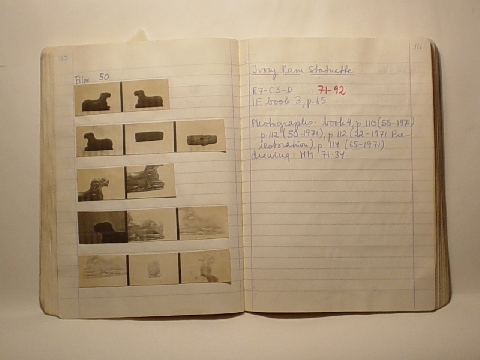 110
Film 50
111
Ivory Ram Statuette
R7-C3-D 71-92
IE book 3, p.65
Photographs: book 4, p. 110 (50-1971)
p. 112 (50-1971), p. 112 (22-1971 Pre
Restoration), p. 114 (65-1971)
drawing: MM 71-34